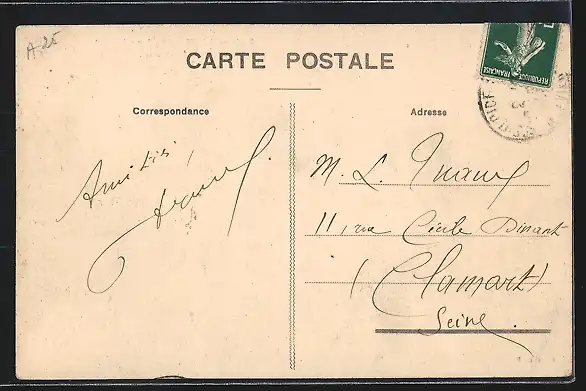 A 25
CARTE POSTALE
Correspondance
Amitiés,
Adresse
M. L.
11, rue Cécile Dinant
(Clamart)
Seine.
REPUBLIQUE FRANÇAISE